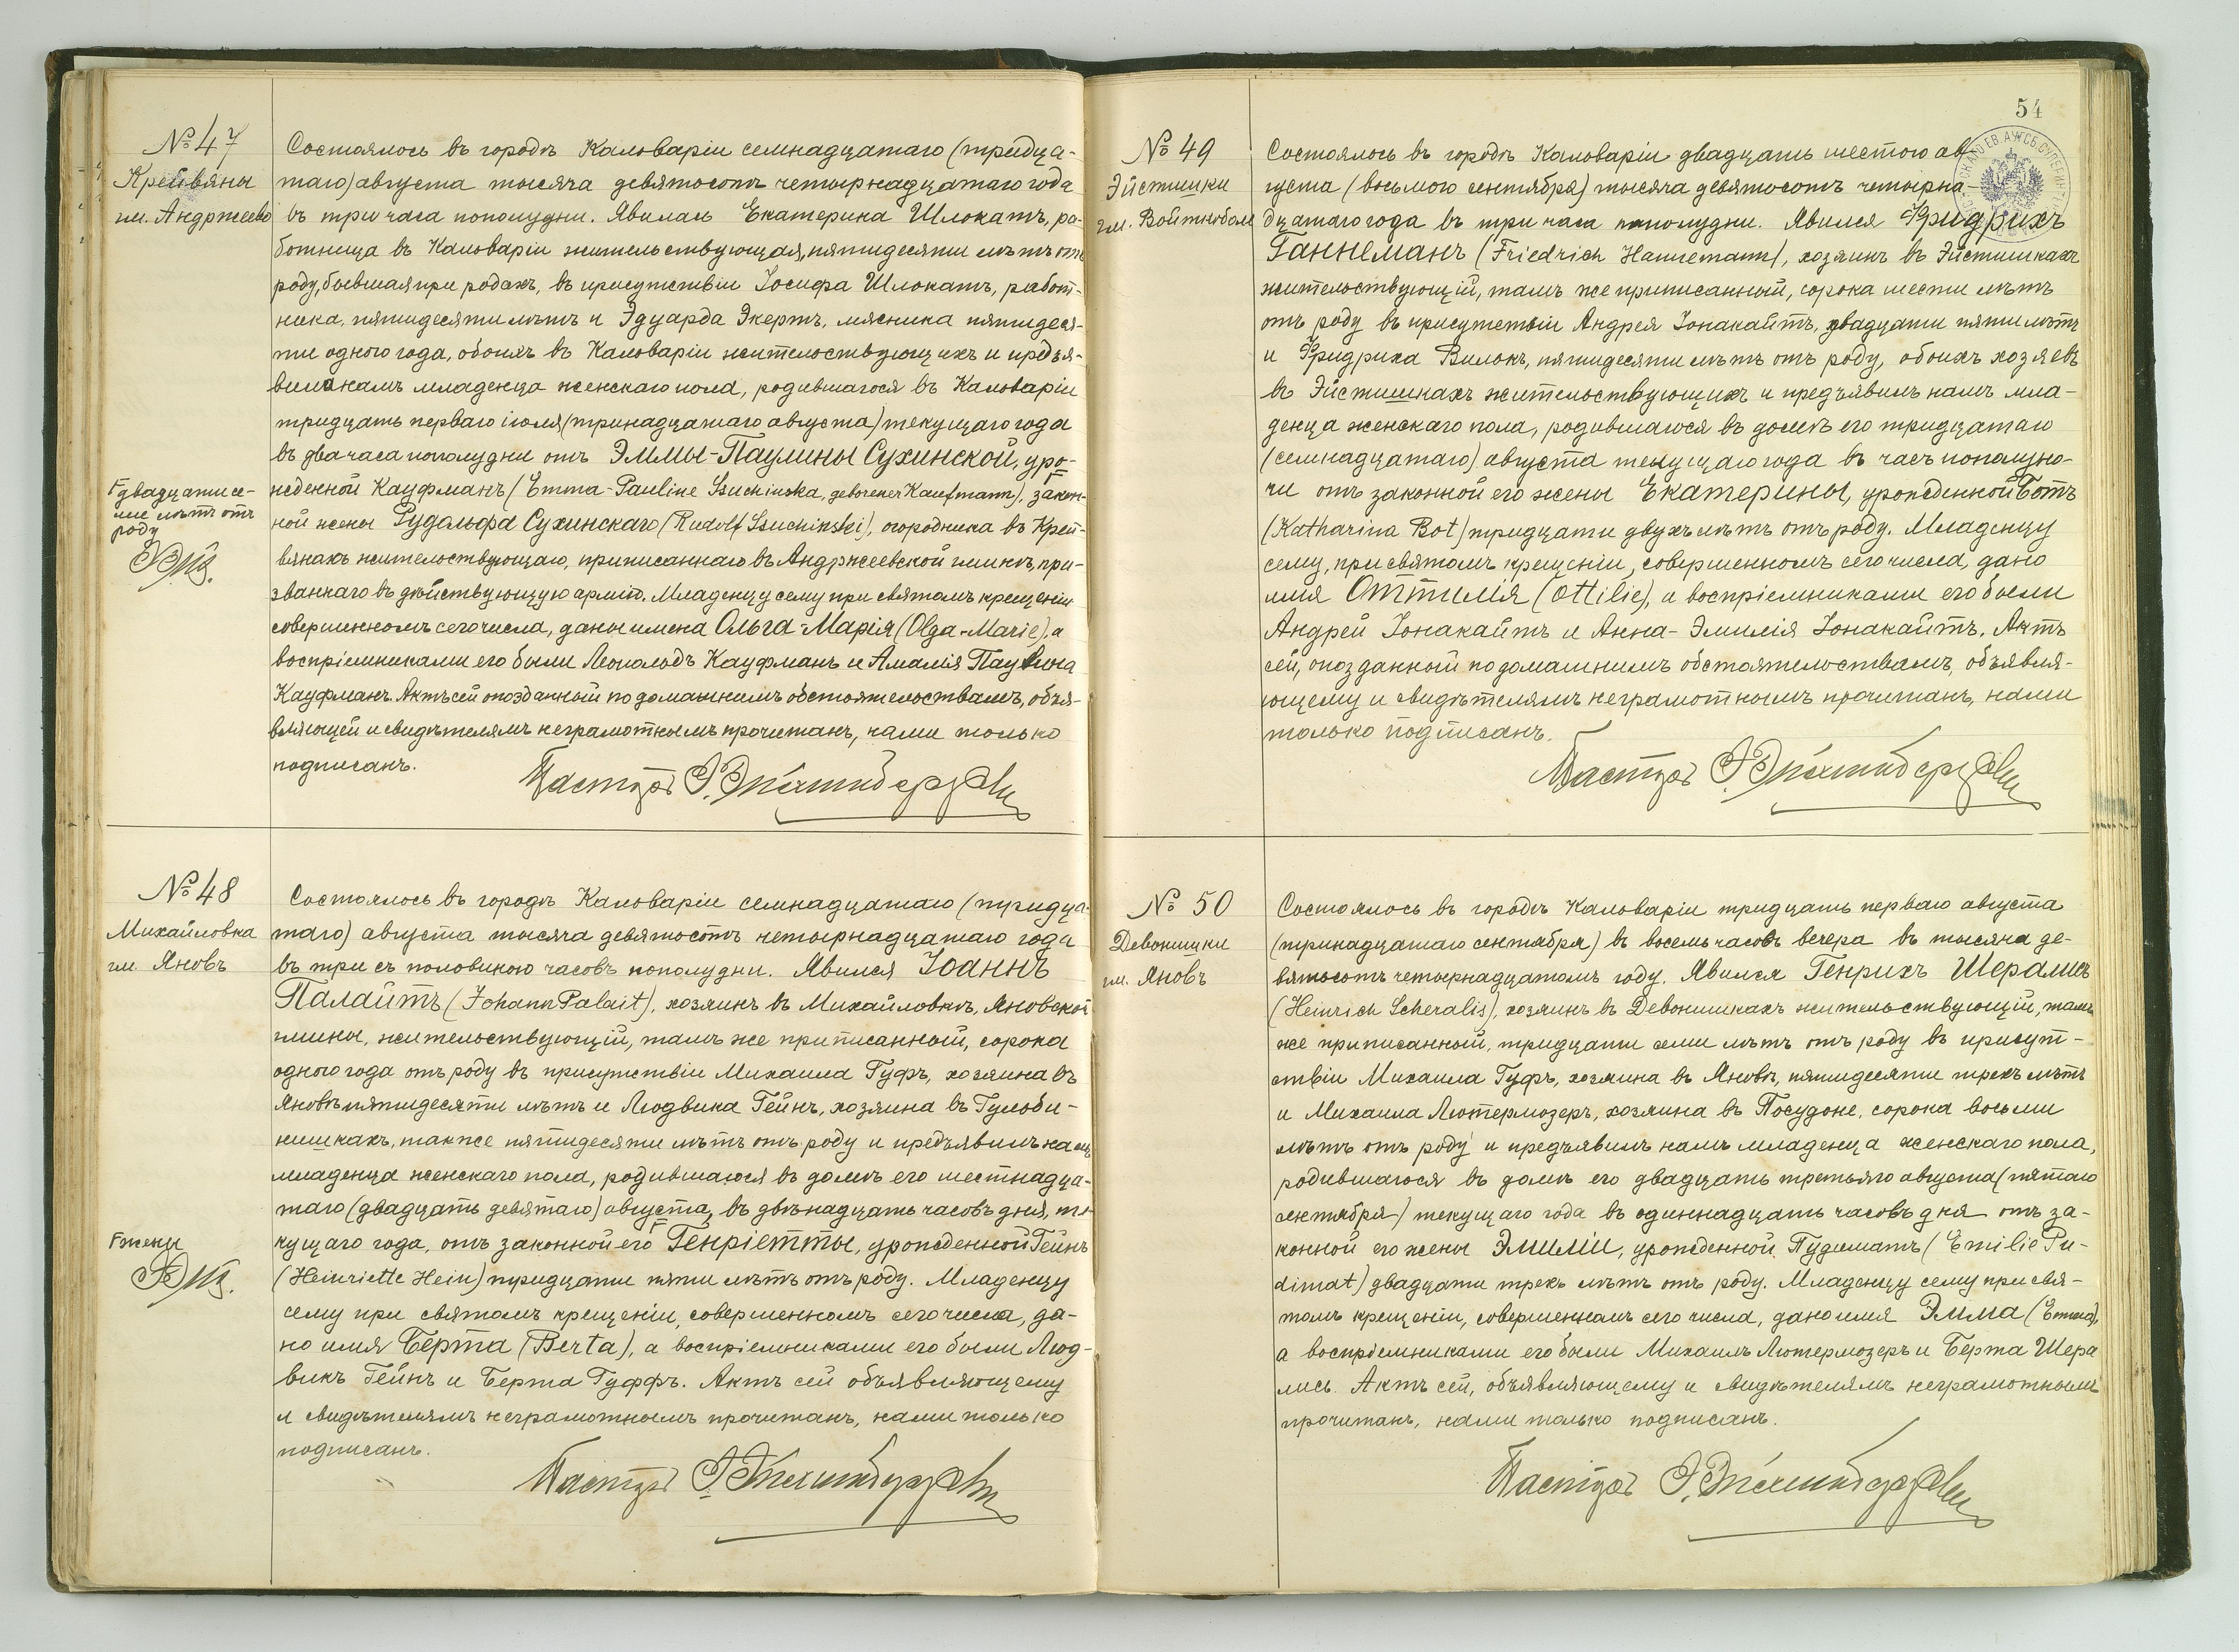 № 47
Крейвяны
гм. Андржеево
Состоялось въ городѣ Кальваріи семнадцатаго (тридца-
таго) августа тысяча девятьсотъ четырнадцатаго года
въ три часа пополудни. Явилась Екатерина Шлокатъ, ра-
ботница въ Кальваріи жительствующая, пятидесяти лѣтъ отъ
роду, бывшая при родахъ, въ присутствіи Іосифа Шлокатъ, работ-
ника, пятидесяти лѣтъ и Эдуарда Экертъ, мясника пятидеся-
ти одного года, обоихъ въ Кальваріи жительствующихъ и предъя-
вила намъ младенца женскаго пола, родившагося въ Кальваріи
тридцать перваго іюля (тринадцатаго августа) текущаго года
въ два часа пополудни отъ Эммы-Паулины Сухинской, уро-
жденной Кауфманъ (Emma-Pauline Szuchinska, geborener Kaufmann), закон-
ной жены Рудольфа Сухинскаго (Rudolf Szuchinski), огородника въ Крей-
вянахъ жительствующаго, приписаннаго въ Андржеевской гминѣ, при-
званнаго въ дѣйствующую армію. Младенцу сему при святомъ крещеніи
совершенномъ сего числа, даны имена Ольга-Марія (Olga-Marie), а
воспріемниками его были Леопольдъ Кауфманъ и Амалія Паулина
Кауфманъ. Актъ сей опозданный по домашнимъ обстоятельствамъ, объя-
вляющей и свидѣтелямъ неграмотнымъ прочитанъ, нами только
подписанъ.
двадцати се-
ми лѣтъ отъ
роду
Пасторъ
№ 48
Михайловка
гм. Яновъ
Состоялось въ городѣ Кальваріи семнадцатаго (тридца-
таго) августа тысяча девятьсотъ четырнадцатаго года
въ три съ половиною часовъ пополудни. Явился Іоаннъ
Палайтъ (Johann Palait), хозяинъ въ Михайловкѣ, Яновской
гмины, жительствующій, тамъ же приписанный, сорока
одного года отъ роду въ присутствіи Михаила Гуфъ, хозяина въ
Яновѣ пятидесяти лѣтъ и Людвика Гейнъ, хозяина въ Гульби-
нишкахъ, также пятидесяти лѣтъ отъ роду и предъявилъ намъ
младенца женскаго пола, родившагося въ домѣ его шестнадца-
таго (двадцать девятаго) августа, въ двѣнадцать часовъ дня, те-
кущаго года, отъ законной его Генріетты, урожденной Гейнъ
(Heinriette Hein) тридцати пяти лѣтъ отъ роду. Младенцу
сему при святомъ крещеніи, совершенномъ сего числа, да-
но имя Берта (Berta), а воспріемниками его были Люд-
викъ Гейнъ и Берта Гуффъ. Актъ сей объявляющему
и свидѣтелямъ неграмотнымъ прочитанъ, нами только
подписанъ.
жены
Пасторъ
54
№ 49
Эйстишки
гм. Войткобол
Состоялось въ городѣ Кальваріи двадцать шестого ав-
густа (восьмого сентября) тысяча девятьсотъ четырна-
дцатаго года въ три часа пополудни. Явился Фридрихъ
Ганнеманъ (Friedrich Hannemann), хозяинъ въ Эйстишкахъ
жительствующій, тамъ же приписанный, сорока шести лѣтъ
отъ роду въ присутствіи Андрея Іонакайтъ, двадцати пяти лѣтъ
и Фридриха Вилокъ, пятидесяти лѣтъ отъ роду, обоихъ хозяевъ
въ Эйстишкахъ жительствующихъ и предъявилъ намъ мла-
денца женскаго пола, родившагося въ домѣ его тридцатаго
(семнадцатаго) августа текущаго года въ часъ пополуно-
чи отъ законной его жены Екатерины, урожденной Ботъ
(Katharina Bot) тридцати двухъ лѣтъ отъ роду. Младенцу
сему, при святомъ крещеніи, совершенномъ сего числа, дано
имя Оттилія (Ottilie), и воспріемниками его были
Андрей Іонакайтъ и Анна-Эмилія Іонакайтъ. Актъ
сей, опозданный по домашнимъ обстоятельствамъ, объявля-
ющему и свидѣтелямъ неграмотнымъ прочитанъ, нами
только подписанъ.
Пасторъ
№ 50
Девонишки
гм. Яновъ
Состоялось въ городѣ Кальваріи тридцать перваго августа
(тринадцатаго сентября) въ восемь часовъ вечера въ тысяча де-
вятьсотъ четырнадцатомъ году. Явился Генрихъ Шералисъ
(Heinrich Scheralis), хозяинъ въ Девонишкахъ жительствующій, тамъ
же приписанный, тридцати семи лѣтъ отъ роду въ присут-
ствіи Михаила Гуфъ, хозяина въ Яновѣ, пятидесяти трехъ лѣтъ
и Михаила Лютермозеръ, хозяина въ Посудоне, сорока восьми
лѣтъ отъ роду и предъявилъ намъ младенца женскаго пола,
родившагося въ домѣ его двадцать третьяго августа (пятаго
сентября) текущаго года въ одиннадцать часовъ дня отъ за-
конной его жены Эмиліи, урожденной Пудиматъ (Emilie Pu-
dimat) двадцати трехъ лѣтъ отъ роду. Младенцу сему при свя-
томъ крещеніи, совершенномъ сего числа, дано имя Эмма (Emma),
а воспріемниками его были Михаилъ Лютермозеръ и Берта Шера
лисъ. Актъ сей, объявляющему и свидѣтелямъ неграмотнымъ
прочитанъ, нами только подписанъ.
Пасторъ